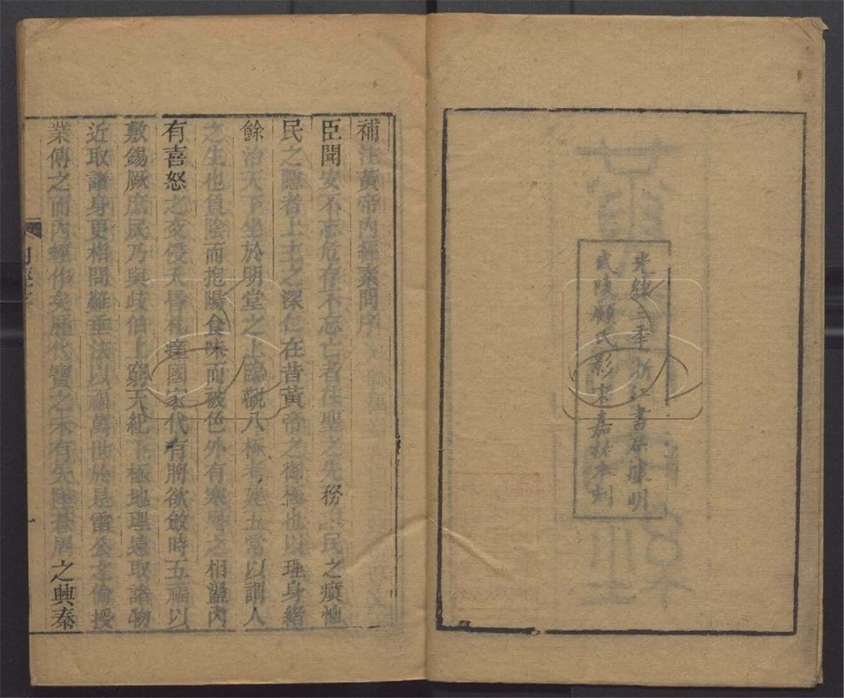 光緒三年浙江書局據明
武陵顧氏影宋嘉祐本刻
補注黃帝內經素問序
臣聞安不忘危存不忘亡者往聖之先務求民之瘼恤
民之隱者上主之深仁在昔黃帝之御極也以理身緒
餘治天下坐於明堂之上臨觀八極考建五常以謂人
之生也負陰而抱陽食味而被色外有寒暑之相盪內
有喜怒之交侵夭昏札瘥國家代有將欲斂時五福以
敷錫厥庶民乃與歧伯上窮天紀下極地理遠取諸物
近取諸身更相問難垂法以福萬世於是雷公之倫授
業傳之而內經作矣歷代寶之未有失墜蒼周之興秦